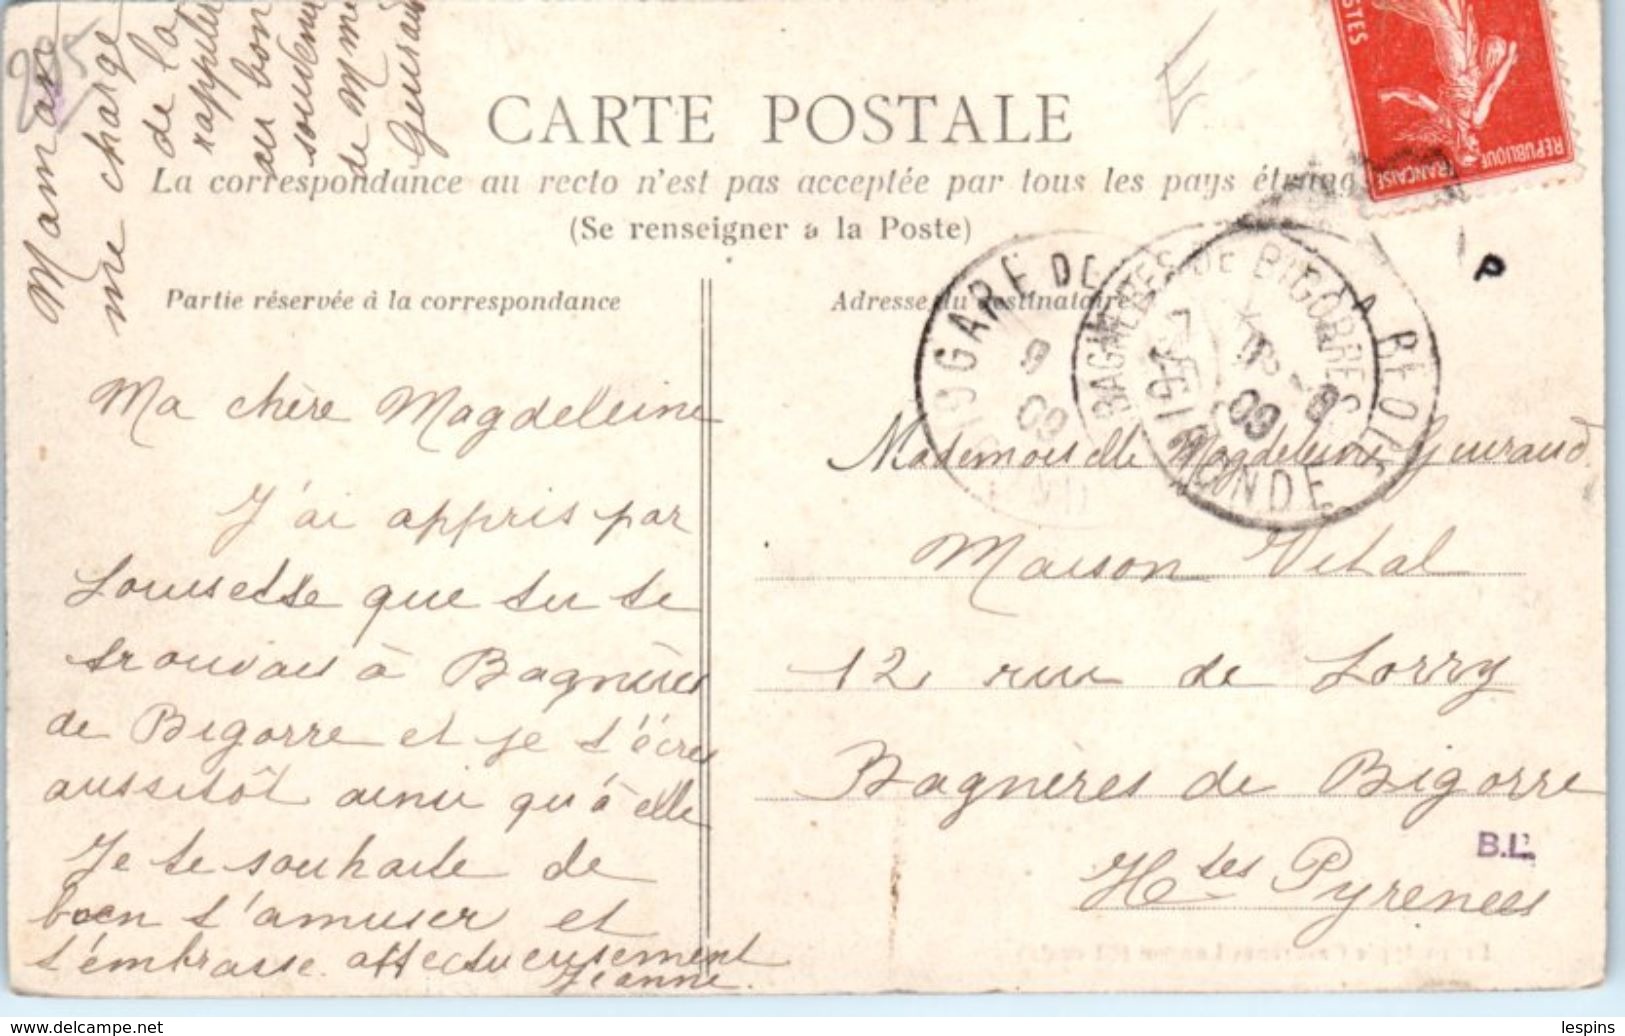 Maman
me charge
de la
rappeler
au bon
souvenir
de Mme
Guiraud
205
CARTE POSTALE
La correspondance au recto n'est pas acceptée par tous les pays
(Se renseigner à la Poste)
Partie réservée à la correspondance
Adresse du destinataire
POSTES
REPUBLIQUE FRANÇAISE
GARE DE
LA REOLE
GIRONDE
09
BAGNERES DE BIGORRE
09
P
Ma chère Magdeleine
J'ai appris par
Louisette que tu te
trouvais à Bagnères
de Bigorre et je t'écris
aussitôt ainsi qu'à elle
Je te souhaite de
bien t'amuser et
t'embrasse affectueusement
Jeanne.
Mademoiselle Magdeleine Guiraud
Maison Vital
12, rue de Lorry
Bagnères de Bigorre
Htes Pyrenees
B.L.
delcampe.net
lespins